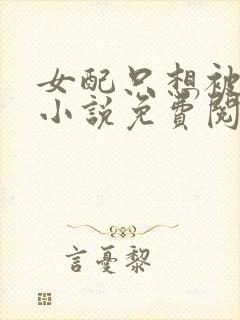 女配只想被
小說免費閱
言憂黎